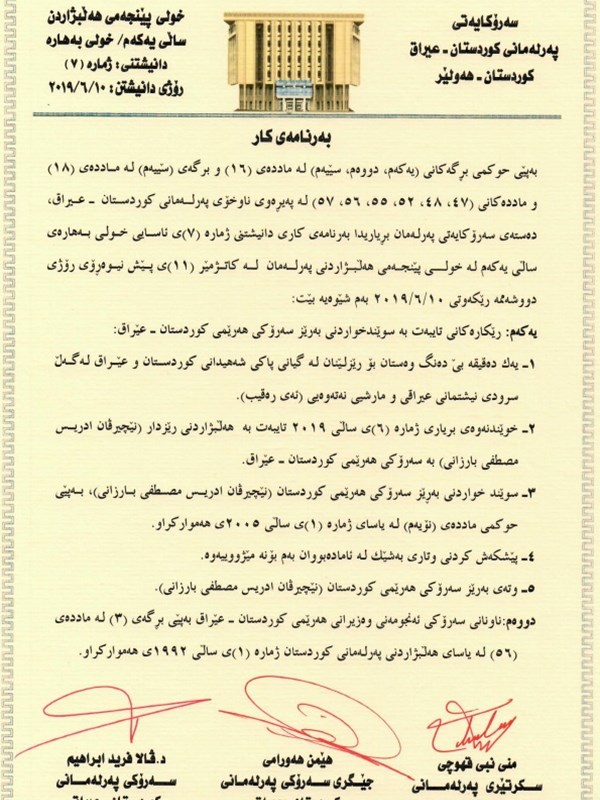 سەرۆکایەتی
پەرلەمانی کوردستان - عیراق
کوردستان - هەولێر
خولی پێنجەمی هەڵبژاردن
ساڵی یەکەم/ خولی بەهارە
دانیشتنی: ژمارە (٧)
رۆژی دانیشتن: ٢٠١٩/٦/١٠
بەرنامەی کار
بەپێی حوکمی برگەکانی (یەکەم، دووەم، سێیەم) لە ماددەی (١٦) و برگەی (سێیەم) لە ماددەی (١٨)
و ماددەکانی (٤٧، ٤٨، ٥٢، ٥٥، ٥٦، ٥٧) لە پەیرەوی ناوخۆی پەرلەمانی کوردستان - عیراق،
دەستەی سەرۆکایەتی پەرلەمان بریاریدا بەرنامەی کاری دانیشتنی ژمارە (٧)ی ئاسایی خولی بەهارەی
ساڵی یەکەم لە خولی پێنجەمی هەڵبژاردنی پەرلەمان لە کاتژمێر (١١)ی پێش نیوەرۆی رۆژی
دووشەممە رێکەوتی ٢٠١٩/٦/١٠ بەم شێوەیە بێت:
یەکەم: رێکارەکانی تایبەت بە سوێندخواردنی بەرێز سەرۆکی هەرێمی کوردستان - عێراق:
١- یەك دەقیقە بێ دەنگ وەستان بۆ رێزلێنان لە گیانی پاکی شەهیدانی کوردستان و عێراق لەگەڵ
سرودی نیشتمانی عیراقی و مارشیی نەتەوەیی (ئەی رەقیب).
٢- خوێندنەوەی بریاری ژمارە (٦)ی ساڵی ٢٠١٩ تایبەت بە هەڵبژاردنی رێزدار (نێچیرڤان ادریس
مصطفی بارزانی) بە سەرۆکی هەرێمی کوردستان - عێراق.
٣- سوێند خواردنی بەرێز سەرۆکی هەرێمی کوردستان (نێچیرڤان ادریس مصطفی بارزانی)، بەپێی
حوکمی ماددەی (نۆیەم) لە یاسای ژمارە (١)ی ساڵی ٢٠٠٥ی هەموارکراو.
٤- پێشکەش کردنی وتاری بەشێك لە ئامادەبووان بەم بۆنە مێژووییەوە.
٥- وتەی بەرێز سەرۆکی هەرێمی کوردستان (نێچیرڤان ادریس مصطفی بارزانی).
دووەم:ناونانی سەرۆکی ئەنجومەنی وەزیرانی هەرێمی کوردستان - عێراق بەپێی برگەی (٣) لە ماددەی
(٥٦) لە یاسای هەڵبژاردنی پەرلەمانی کوردستان ژمارە (١)ی ساڵی ١٩٩٢ی هەموارکراو.
منی نبی قهوچی
سکرتێری پەرلەمانی
هێمن هەورامی
جێگری سەرۆکی پەرلەمانی
د.ڤالا فرید ابراهیم
سەرۆکی پەرلەمانی